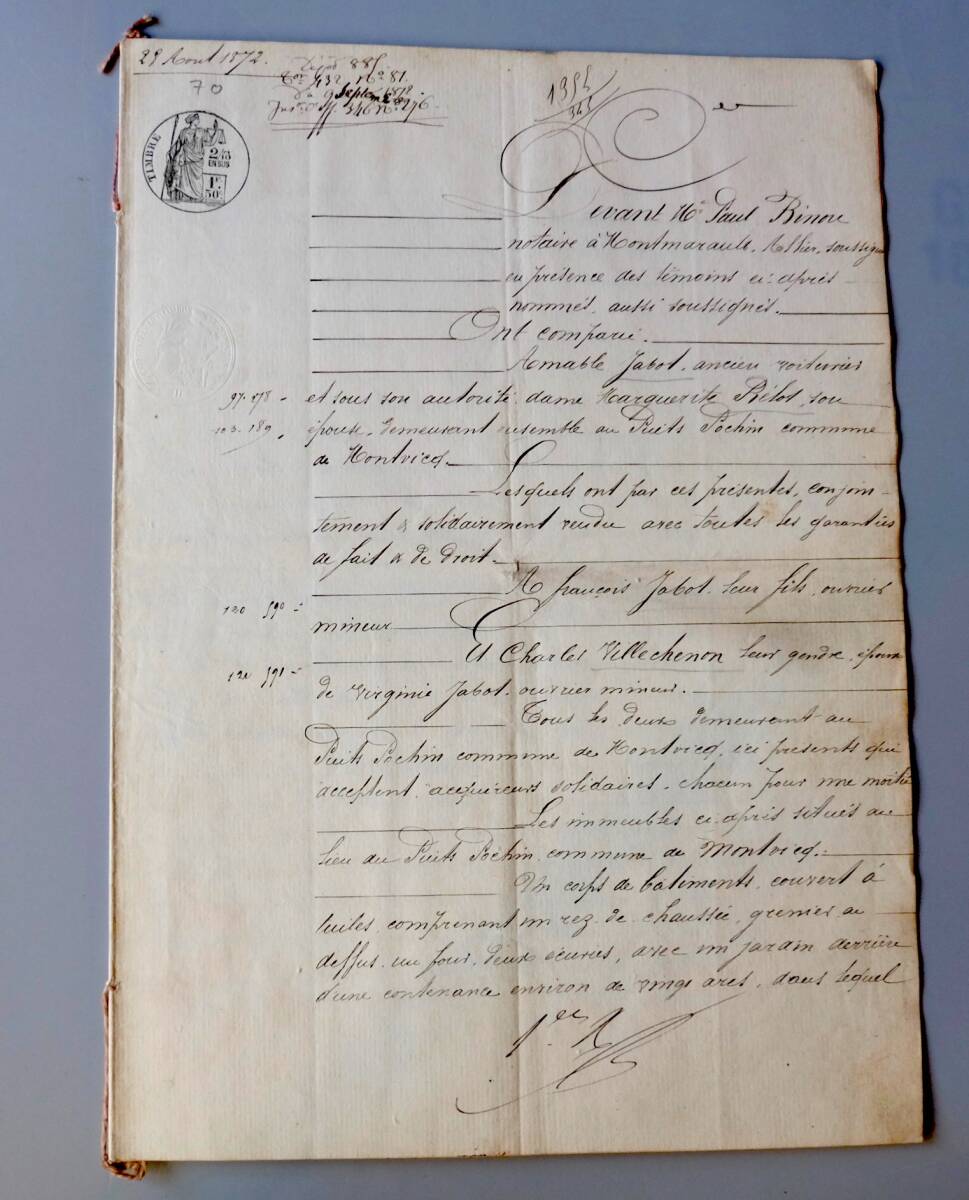 29 Aout 1872.
70
Dépôt 885
Vol 432 N° 81.
du 9 Septembre 1872
ff. 346 N° 276
1355
365
TIMBRE
2/10
EN SUS
1F.
50c.
Devant Me Paul Rinou
notaire à Montmarault, Allier, soussigné
en présence des témoins ci-après
nommés, aussi soussignés.
Ont comparu.
Amable Jabot, ancien voiturier
97. 178 -
et sous son autorité dame Marguerite Pilot, son
103. 189.
épouse, demeurant ensemble au Puits Pochin commune
de Montvicq.
Lesquels ont par ces présentes, conjoin-
tement & solidairement vendu avec toutes les garanties
de fait & de droit.
A françois Jabot, leur fils, ouvrier
120 590 -
mineur
Et Charles Villechenon leur gendre, époux
120 591 -
de Virginie Jabot, ouvrier mineur.
Tous les deux demeurant au
Puits Pochin commune de Montvicq, ici présents qui
acceptent, acquéreurs solidaires, chacun pour une moitié
Les immeubles ci-après situés au
lieu du Puits Pochin, commune de Montvicq.
Un corps de bâtiments, couvert à
tuiles, comprenant un rez-de-chaussée, grenier au
dessus, un four, deux écuries, avec un jardin derrière
d'une contenance environ de vingt ares, dans lequel
1er R